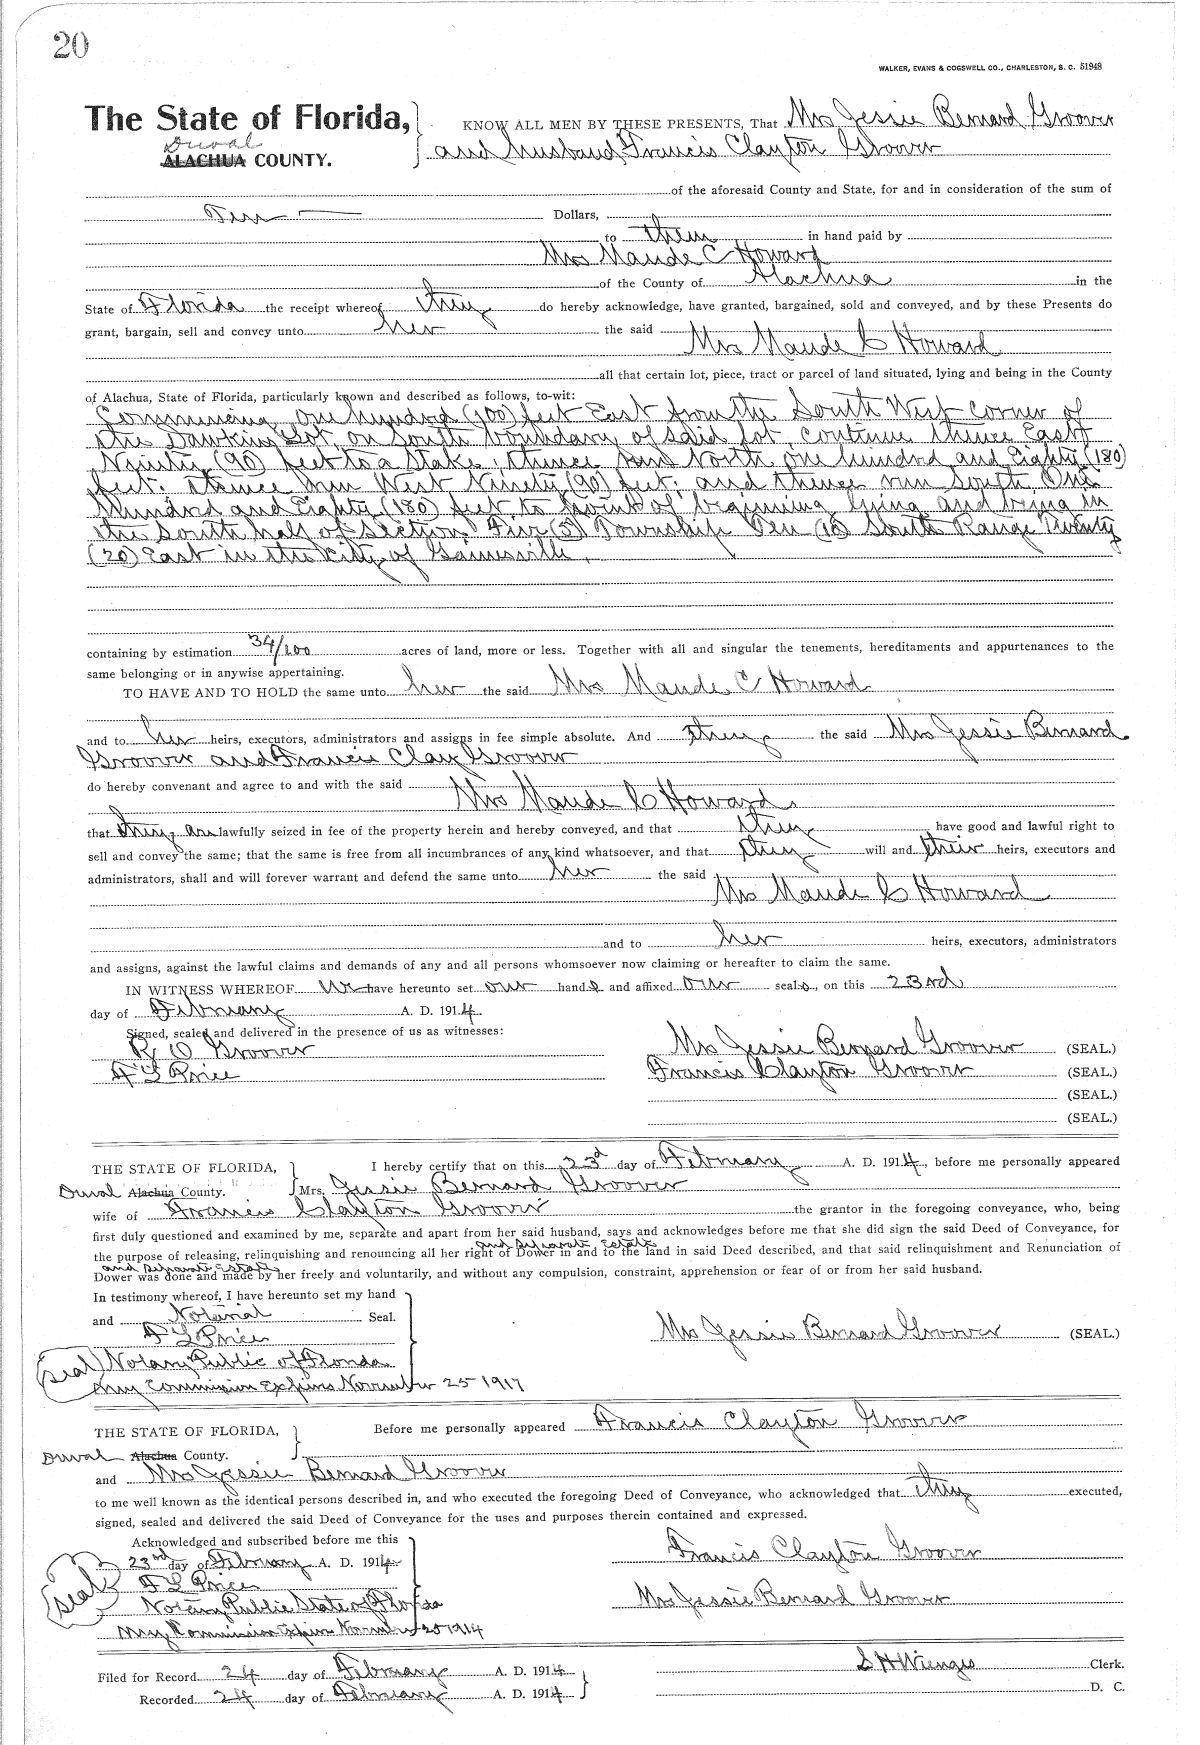 20
WALKER, EVANS & COGSWELL CO., CHARLESTON, S. C. 51948
The State of Florida, KNOW ALL MEN BY THESE PRESENTS, That Mrs Jessie Bernard Groover
Duval
ALACHUA COUNTY. and husband, Francis Clayton Groover
of the aforesaid County and State, for and in consideration of the sum of
Ten Dollars,
to them in hand paid by
Mrs Maude C Howard
of the County of Alachua in the
State of Florida the receipt whereof they do hereby acknowledge, have granted, bargained, sold and conveyed, and by these Presents do
grant, bargain, sell and convey unto her the said
Mrs Maude C Howard
all that certain lot, piece, tract or parcel of land situated, lying and being in the County
of Alachua, State of Florida, particularly known and described as follows, to-wit:
Commencing one hundred (100) feet East from the South West corner of
the Dawkins Lot, on South boundary of said lot, continue thence East
Ninety (90) feet to a stake, thence run North one hundred and Eighty (180)
feet: thence run West Ninety (90) feet; and thence run South One
Hundred and Eighty (180) feet to point of beginning lying and being in
the South half of Section Five (5) Township Ten (10) South Range Twenty
(20) East in the City of Gainesville,
containing by estimation 34/100 acres of land, more or less. Together with all and singular the tenements, hereditaments and appurtenances to the
same belonging or in anywise appertaining.
TO HAVE AND TO HOLD the same unto her the said Mrs Maude C Howard
and to her heirs, executors, administrators and assigns in fee simple absolute. And they the said Mrs Jessie Bernard
Groover and Francis Clay Groover
do hereby convenant and agree to and with the said
Mrs Maude C Howard
that they are lawfully seized in fee of the property herein and hereby conveyed, and that they have good and lawful right to
sell and convey the same; that the same is free from all incumbrances of any kind whatsoever, and that they will and their heirs, executors and
administrators, shall and will forever warrant and defend the same unto her the said
Mrs Maude C Howard
and to her heirs, executors, administrators
and assigns, against the lawful claims and demands of any and all persons whomsoever now claiming or hereafter to claim the same.
IN WITNESS WHEREOF We have hereunto set our hands and affixed our seals, on this 23rd
day of February A. D. 1914.
Signed, sealed and delivered in the presence of us as witnesses:
R O Groover Mrs Jessie Bernard Groover (SEAL.)
F L Price Francis Clayton Groover (SEAL.)
(SEAL.)
(SEAL.)
THE STATE OF FLORIDA, I hereby certify that on this 23d day of February A. D. 1914, before me personally appeared
Duval Alachua County. Mrs. Jessie Bernard Groover
wife of Francis Clayton Groover the grantor in the foregoing conveyance, who, being
first duly questioned and examined by me, separate and apart from her said husband, says and acknowledges before me that she did sign the said Deed of Conveyance, for
and Separate Estate
the purpose of releasing, relinquishing and renouncing all her right of Dower in and to the land in said Deed described, and that said relinquishment and Renunciation of
and Separate Estate
Dower was done and made by her freely and voluntarily, and without any compulsion, constraint, apprehension or fear of or from her said husband.
In testimony whereof, I have hereunto set my hand
and Notarial Seal.
F L Price Mrs Jessie Bernard Groover (SEAL.)
(Seal) Notary Public of Florida
My Commission Expires November 25 1917
THE STATE OF FLORIDA, Before me personally appeared Francis Clayton Groover
Duval Alachua County.
and Mrs Jessie Bernard Groover
to me well known as the identical persons described in, and who executed the foregoing Deed of Conveyance, who acknowledged that they executed,
signed, sealed and delivered the said Deed of Conveyance for the uses and purposes therein contained and expressed.
Acknowledged and subscribed before me this
23rd day of February A. D. 1914 Francis Clayton Groover
F L Price
(Seal) Notary Public State of Florida Mrs Jessie Bernard Groover
My Commission Expires November 25 1914
Filed for Record 24 day of February A. D. 1914 S H Wienges Clerk.
Recorded 24 day of February A. D. 1914 D. C.